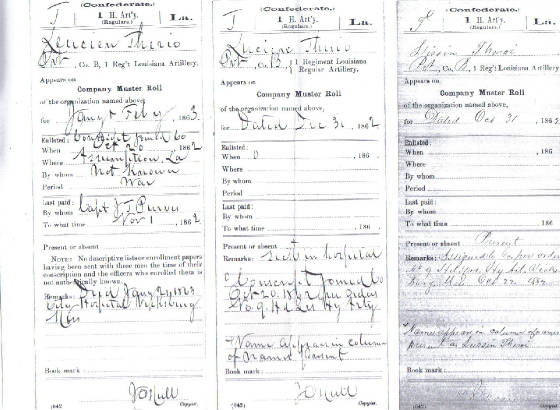 (Confederate.)
T | 1 H. Art'y. (Regulars.) | La.
Lucien Therio
Pvt, Co. B, 1 Reg't Louisiana Artillery.
Appears on
Company Muster Roll
of the organization named above,
for Jany & Feby, 1863.
Enlisted: Conscript joined Co
When Oct 20, 1862
Where Assumption, La
By whom Not Known
Period War
Last paid:
By whom Capt J T Purves
To what time Nov 1, 1862
Present or absent
NOTE: No descriptive lists or enrollment papers
having been sent with these men the time of their
conscription and the officers who enrolled them is
not authentically known.
Remarks: Died Jany 1863
City Hospital Vicksburg
Miss
Book mark:
(642) Copyist.
(Confederate.)
T | 1 H. Art'y. (Regulars.) | La.
Pvt, Co. B, 1 Regiment Louisiana
Regular Artillery.
Appears on
Company Muster Roll
of the organization named above,
for Dated Dec 31, 1862
Enlisted:
When, 186
Where
By whom
Period
Last paid:
By whom
To what time, 186
Present or absent
Remarks: Sick in hospital
Conscript joined Co
Oct 20. 1862 per order
No 9 Hd Qrs Hy Arty
Name appears in column
of names present
Book mark:
(642) Copyist.
(Confederate.)
1 H. Art'y. (Regulars.) | La.
Co. B, 1 Reg't Louisiana Artillery.
Appears on
Company Muster Roll
of the organization named above,
for Dated Oct 31, 186
Enlisted:
When, 186
Where
By whom
Period
Last paid:
By whom
To what time, 186
Present or absent Present
Remarks: Assigned to Co per order
No 9
Name appears in column of names
present as
Book mark:
(642) Copyist.